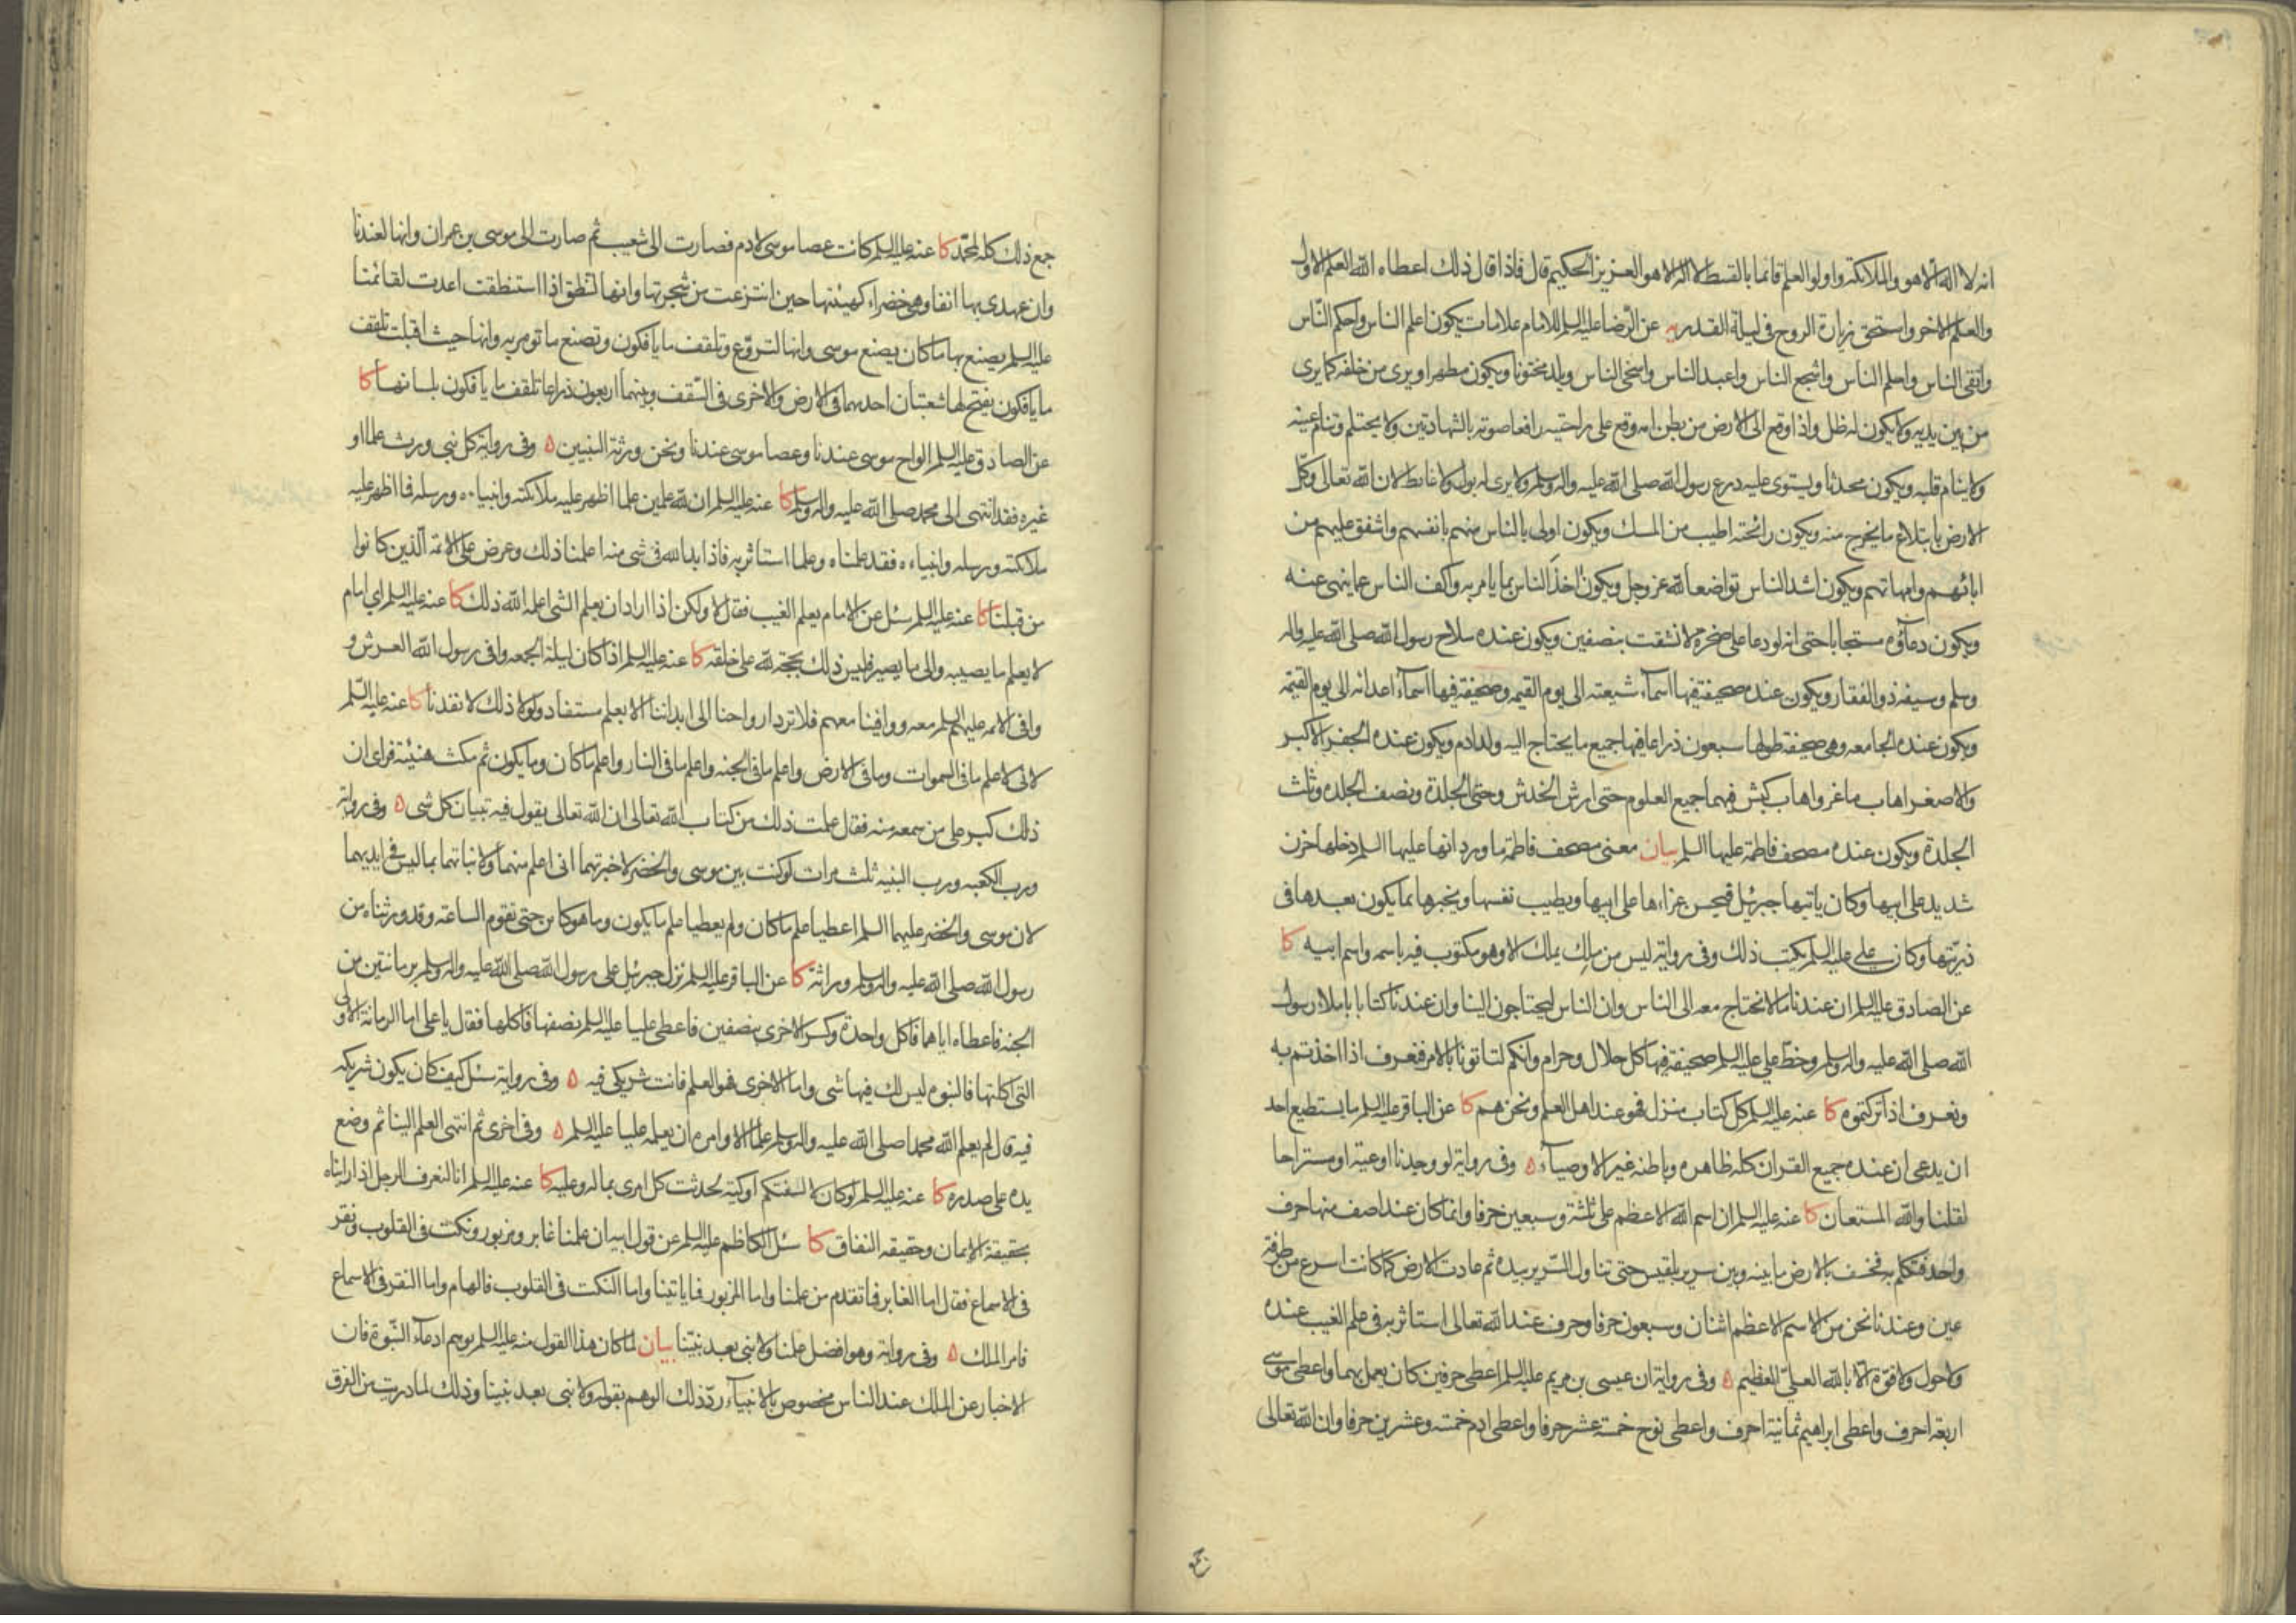 انه لا اله الا هو والملائكة واولو العلم قائما بالقسط لا اله الا هو العزيز الحكيم قال فاذا قال ذلك اعطاه الله العلم الاول
والعلم الاخر واستحق زيارة الروح في ليلة القدر يه عن الرضا عليه السلم للامام علامات يكون اعلم الناس واحكم الناس
واتقى الناس واحلم الناس واشجع الناس واعبد الناس واسخى الناس ويلد مختونا ويكون مطهرا ويرى من خلفه كما يرى
من بين يديه ولا يكون له ظل واذا وقع الى الارض من بطن امه وقع على راحتيه رافعا صوته بالشهادتين ولا يحتلم وتنام عينه
ولا ينام قلبه ويكون محدثا ويستوى عليه درع رسول الله صلى الله عليه واله وسلم ولا يرى له بول ولا غائط لان الله تعالى وكل
الارض بابتلاع ما يخرج منه ويكون رائحته اطيب من المسك ويكون اولى بالناس منهم بانفسهم واشفق عليهم من
ابائهم وامهاتهم ويكون اشد الناس تواضعا لله عز وجل ويكون اخذ الناس بما يامر به واكف الناس عما ينهى عنه
ويكون دعاؤه مستجابا حتى انه لو دعا على صخرة لانشقت بنصفين ويكون عنده سلاح رسول الله صلى الله عليه واله
وسلم وسيفه ذو الفقار ويكون عنده صحيفة فيها اسماء شيعته الى يوم القيمه وصحيفة فيها اسماء اعدائه الى يوم القيمه
ويكون عنده الجامعه وهى صحيفة طولها سبعون ذراعا فيها جميع ما يحتاج اليه ولد ادم ويكون عنده الجفر الاكبر
والاصغر اهاب ماغر واهاب كبش فيهما جميع العلوم حتى ارش الخدش وحتى الجلدة ونصف الجلده وثلث
الجلدة ويكون عنده مصحف فاطمة عليها السلم بيان معنى مصحف فاطمة ما ورد انها عليها السلم دخلها حزن
شديد على ابيها وكان ياتيها جبرئيل فيحسن عزاءها على ابيها ويطيب نفسها ويخبرها بما يكون بعدها فى
ذريتها وكان على عليه السلم يكتب ذلك وفى رواية ليس من ملك يملك الا وهو مكتوب فيه باسمه واسم ابيه كا
عن الصادق عليه السلم ان عندنا ما لا نحتاج معه الى الناس وان الناس ليحتاجون الينا وان عندنا كتابا باملاء رسول
الله صلى الله عليه واله وسلم وخط على عليه السلم صحيفة فيها كل حلال وحرام وانكم لتاتونا بالامر فنعرف اذا اخذتم به
ونعرف اذا تركتموه كا عنه عليه السلم كل كتاب منزل فهو عند اهل العلم ونحن هم كا عن الباقر عليه السلم ما يستطيع احد
ان يدعى ان عنده جميع القران كله ظاهره وباطنه غير الاوصياء ه وفى رواية لو وجدنا اوعية او مستراحا
لقلنا والله المستعان كا عنه عليه السلم ان اسم الله الاعظم على ثلثة وسبعين حرفا وانما كان عند اصف منها حرف
واحد فتكلم به فخسف بالارض ما بينه وبين سرير بلقيس حتى تناول السرير بيده ثم عادت الارض كما كانت اسرع من طرفة
عين وعندنا نحن من الاسم الاعظم اثنان وسبعون حرفا وحرف عند الله تعالى استاثر به فى علم الغيب عنده
ولا حول ولا قوة الا بالله العلى العظيم ه وفى رواية ان عيسى بن مريم عليه السلم اعطى حرفين كان يعمل بهما واعطى موسى
اربعة احرف واعطى ابراهيم ثمانية احرف واعطى نوح خمسة عشر حرفا واعطى ادم خمسة وعشرين حرفا وان الله تعالى
جمع ذلك كله لمحمد كا عنه عليه السلم كانت عصا موسى لادم فصارت الى شعيب ثم صارت الى موسى بن عمران وانها لعندنا
وان عهدى بها انفا وهى خضراء كهيئتها حين انتزعت من شجرتها وانها لتنطق اذا استنطقت اعدت لقائمنا
عليه السلم يصنع بها ما كان يصنع موسى وانها لتروع وتلقف ما يافكون وتصنع ما تومر به وانها حيث اقبلت تلقف
ما يافكون يفتح لها شعبتان احديهما فى الارض والاخرى فى السقف وبينهما اربعون ذراعا تلقف ما يافكون بلسانها كا
عن الصادق عليه السلم الواح موسى عندنا وعصا موسى عندنا ونحن ورثة النبيين ه وفى رواية كل نبى ورث علما او
غيره فقد انتهى الى محمد صلى الله عليه واله وسلم كا عنه عليه السلم ان لله علمين علما اظهر عليه ملائكته وانبياءه ورسله فما اظهر عليه
ملائكته ورسله وانبياءه فقد علمناه وعلما استاثر به فاذا بدا لله فى شى منه اعلمنا ذلك وعرض على الائمة الذين كانوا
من قبلنا كا عنه عليه السلم سئل عن الامام يعلم الغيب فقال لا ولكن اذا اراد ان يعلم الشى اعلمه الله ذلك كا عنه عليه السلم اى امام
لا يعلم ما يصيبه والى ما يصير فليس ذلك بحجة لله على خلقه كا عنه عليه السلم اذا كان ليلة الجمعه وافى رسول الله العرش و
وافى الائمه عليهم السلم معه ووافينا معهم فلا ترد ارواحنا الى ابداننا الا بعلم مستفاد ولولا ذلك لانفدنا كا عنه عليه السلم
لانى لاعلم ما فى السموات وما فى الارض واعلم ما فى الجنه واعلم ما فى النار واعلم ما كان وما يكون ثم مكث هنيئة فراى ان
ذلك كبر على من سمعه منه فقال علمت ذلك من كتاب الله تعالى ان الله تعالى يقول فيه تبيان كل شى ه وفى رواية
ورب الكعبه ورب البنيه ثلث مرات لو كنت بين موسى والخضر لاخبرتهما انى اعلم منهما ولانباتهما بما ليس فى ايديهما
لان موسى والخضر عليهما السلم اعطيا علم ما كان ولم يعطيا علم ما يكون وما هو كائن حتى تقوم الساعة وقد ورثناه من
رسول الله صلى الله عليه واله وسلم وراثة كا عن الباقر عليه السلم نزل جبرئيل على رسول الله صلى الله عليه واله وسلم برمانتين من
الجنه فاعطاه اياهما فاكل واحدة وكسر الاخرى بنصفين فاعطى عليا عليه السلم نصفها فاكلها فقال يا على اما الرمانة الاولى
التى اكلتها فالنبوة ليس لك فيها شى واما الاخرى فهو العلم فانت شريكى فيه ه وفى رواية سئل كيف كان يكون شريكه
فيه قال لم يعلم الله محمدا صلى الله عليه واله وسلم علما الا وامره ان يعلمه عليا عليه السلم ه وفى اخرى ثم انتهى العلم الينا ثم وضع
يده على صدره كا عنه عليه السلم لو كان لالسنتكم اوكية لحدثت كل امرى بما له وعليه كا عنه عليه السلم انا لنعرف الرجل اذا رايناه
بحقيقة الايمان وحقيقه النفاق كا سئل الكاظم عليه السلم عن قول ابيه ان علمنا غابر ومزبور ونكت فى القلوب ونقر
فى الاسماع فقال اما الغابر فما تقدم من علمنا واما المزبور فما ياتينا واما النكت فى القلوب فالهام واما النقر فى الاسماع
فامر الملك ه وفى رواية وهو افضل علمنا ولا نبى بعد نبينا بيان لما كان هذا القول منه عليه السلم يوهم ادعاء النبوة فان
الاخبار عن الملك عند الناس مخصوص بالانبياء رد ذلك الوهم بقوله ولا نبى بعد نبينا وذلك لما دريت من الفرق